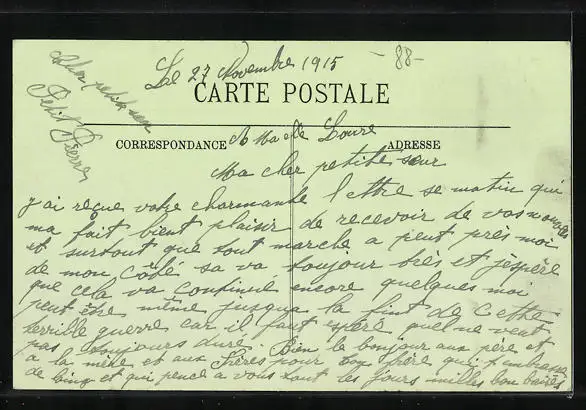 Le 27 Novembre 1915
-88-
CARTE POSTALE
Petit Pierre
CORRESPONDANCE
A Ma Louve
ADRESSE
Ma cher petite sœur
j'ai reçue votre charmande lettre se matin qui
ma fait bient plaisir de recevoir de vos nouvelles
et surtout que tout marche a peut près moi
de mon côté sa va toujour biès et j'espère
que cela va continué encore quelques moi
peut être même jusqua la fint de cette
terrille guerre car il faut espéré quel ne veut
pas toujours duré. Bien le bonjour aux père et
a la mère et aux frères pour ton frère qui t'embrasse
de loing et qui pence a vous tout les jours milles bon baisés